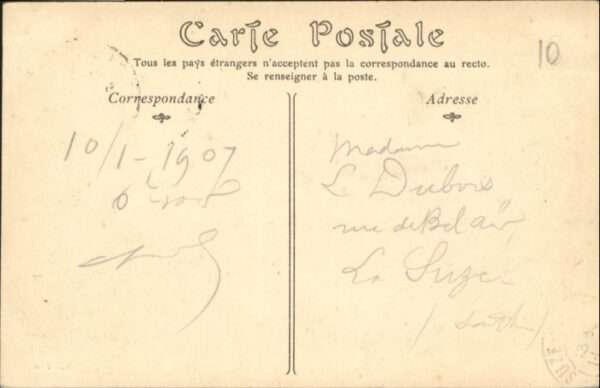 Carte Postale
Tous les pays étrangers n'acceptent pas la correspondance au recto.
Se renseigner à la poste.
10
Correspondance
10/1-1907
Adresse
Madame
L Dubois
rue de Bel air
La Suze
(Sarthe)
SUZE